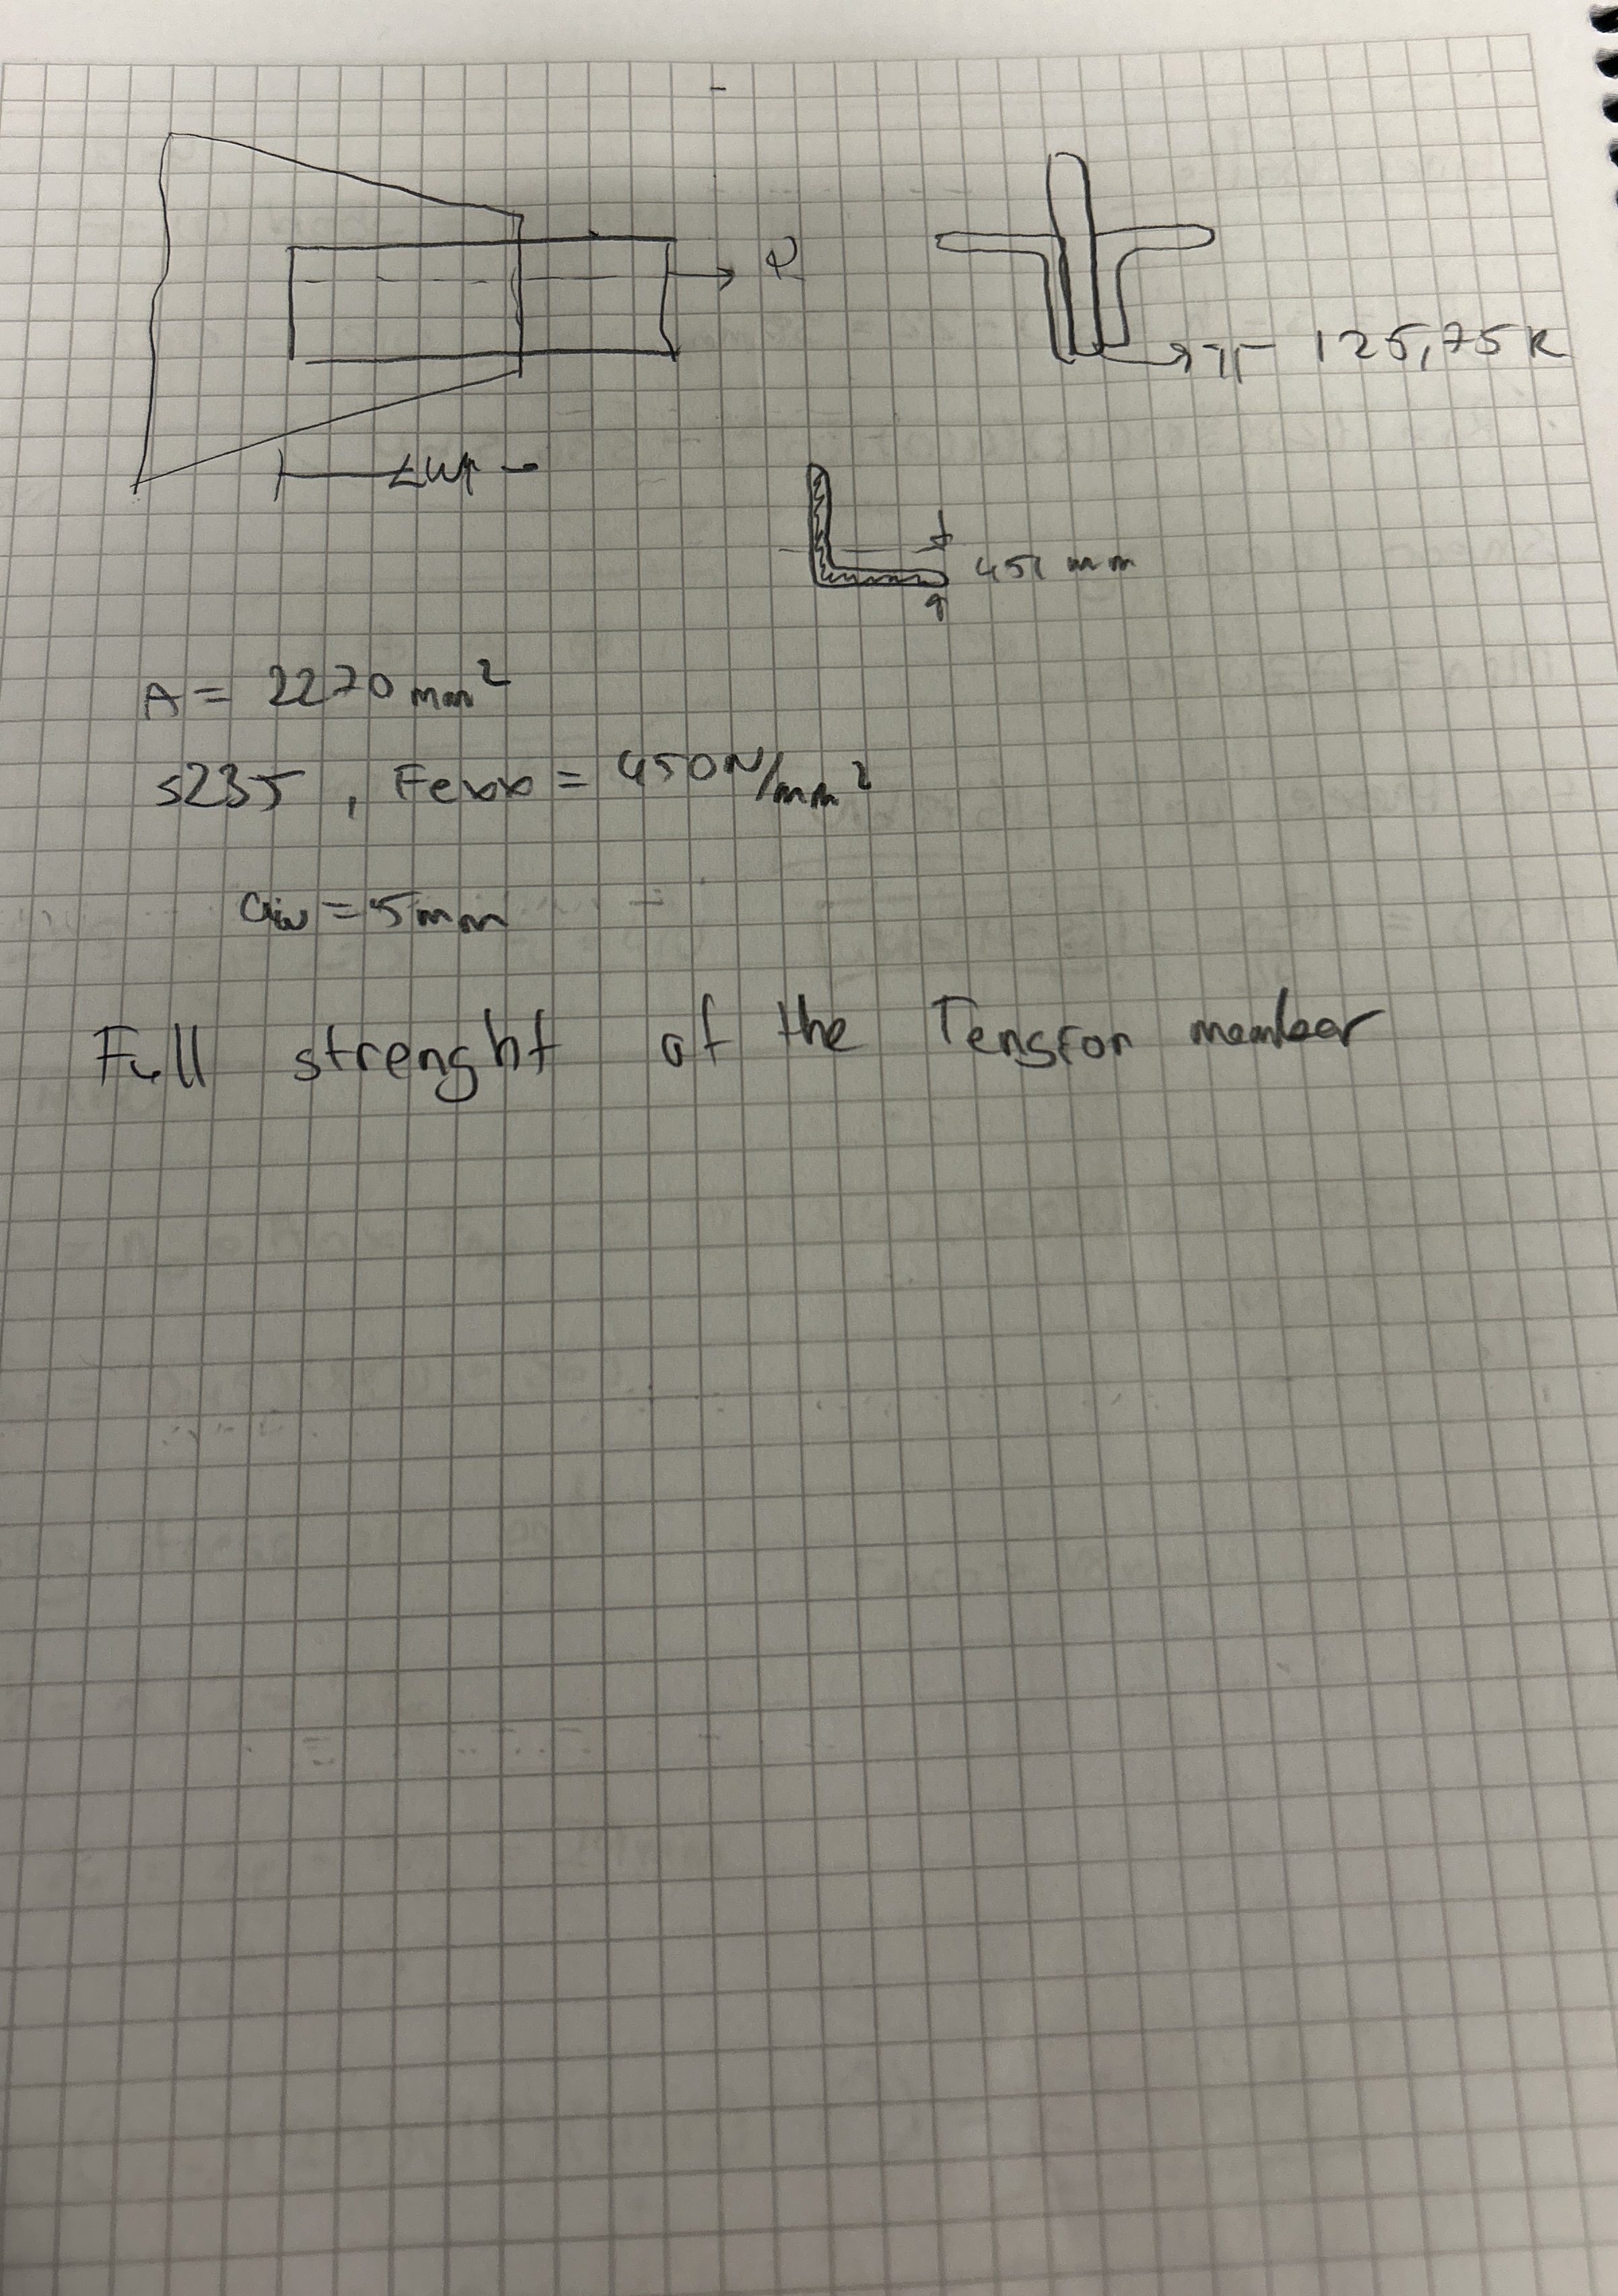 125,75
mm
A = 2270 mm²
S235 , Fexx = 450N/mm²
aw = 5mm
Full strenght of the Tension member